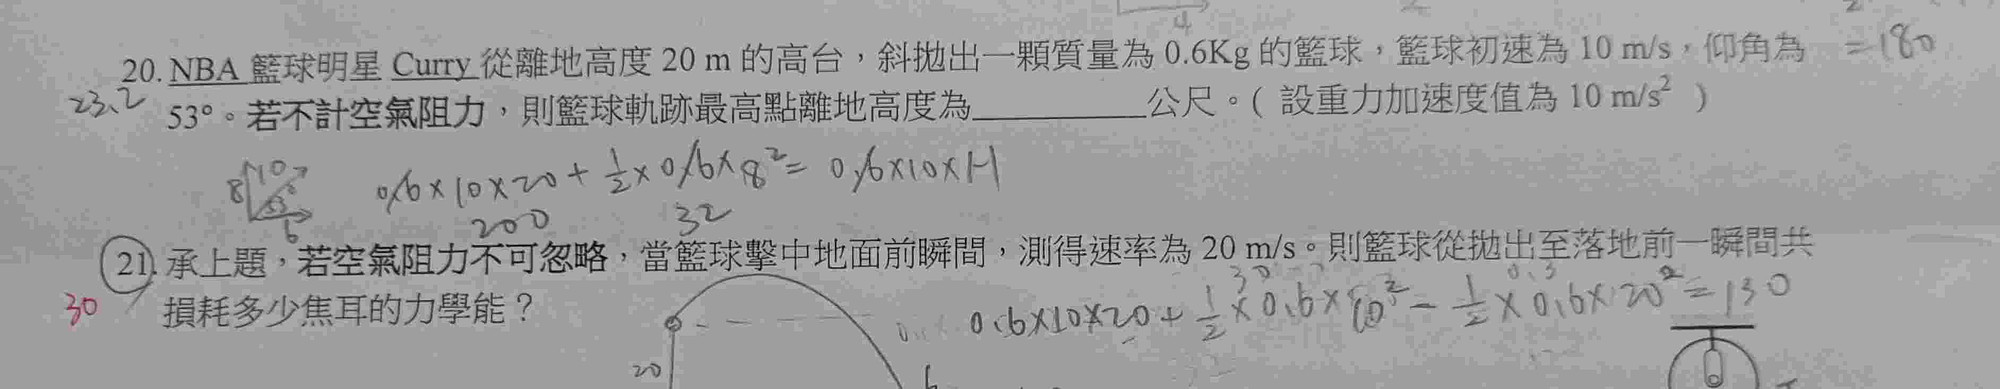 4
20. NBA 籃球明星 Curry 從離地高度 20 m 的高台，斜拋出一顆質量為 0.6Kg 的籃球，籃球初速為 10 m/s，仰角為 =180
23.2 53°。若不計空氣阻力，則籃球軌跡最高點離地高度為__________公尺。( 設重力加速度值為 10 m/s² )
8 10 53 6 0.6×10×20 + 1/2×0.6×8² = 0.6×10×H
200 32
21. 承上題，若空氣阻力不可忽略，當籃球擊中地面前瞬間，測得速率為 20 m/s。則籃球從拋出至落地前一瞬間共
30 損耗多少焦耳的力學能？
30 0.3
0.6×10×20 + 1/2×0.6×10² - 1/2×0.6×20² = 130
20